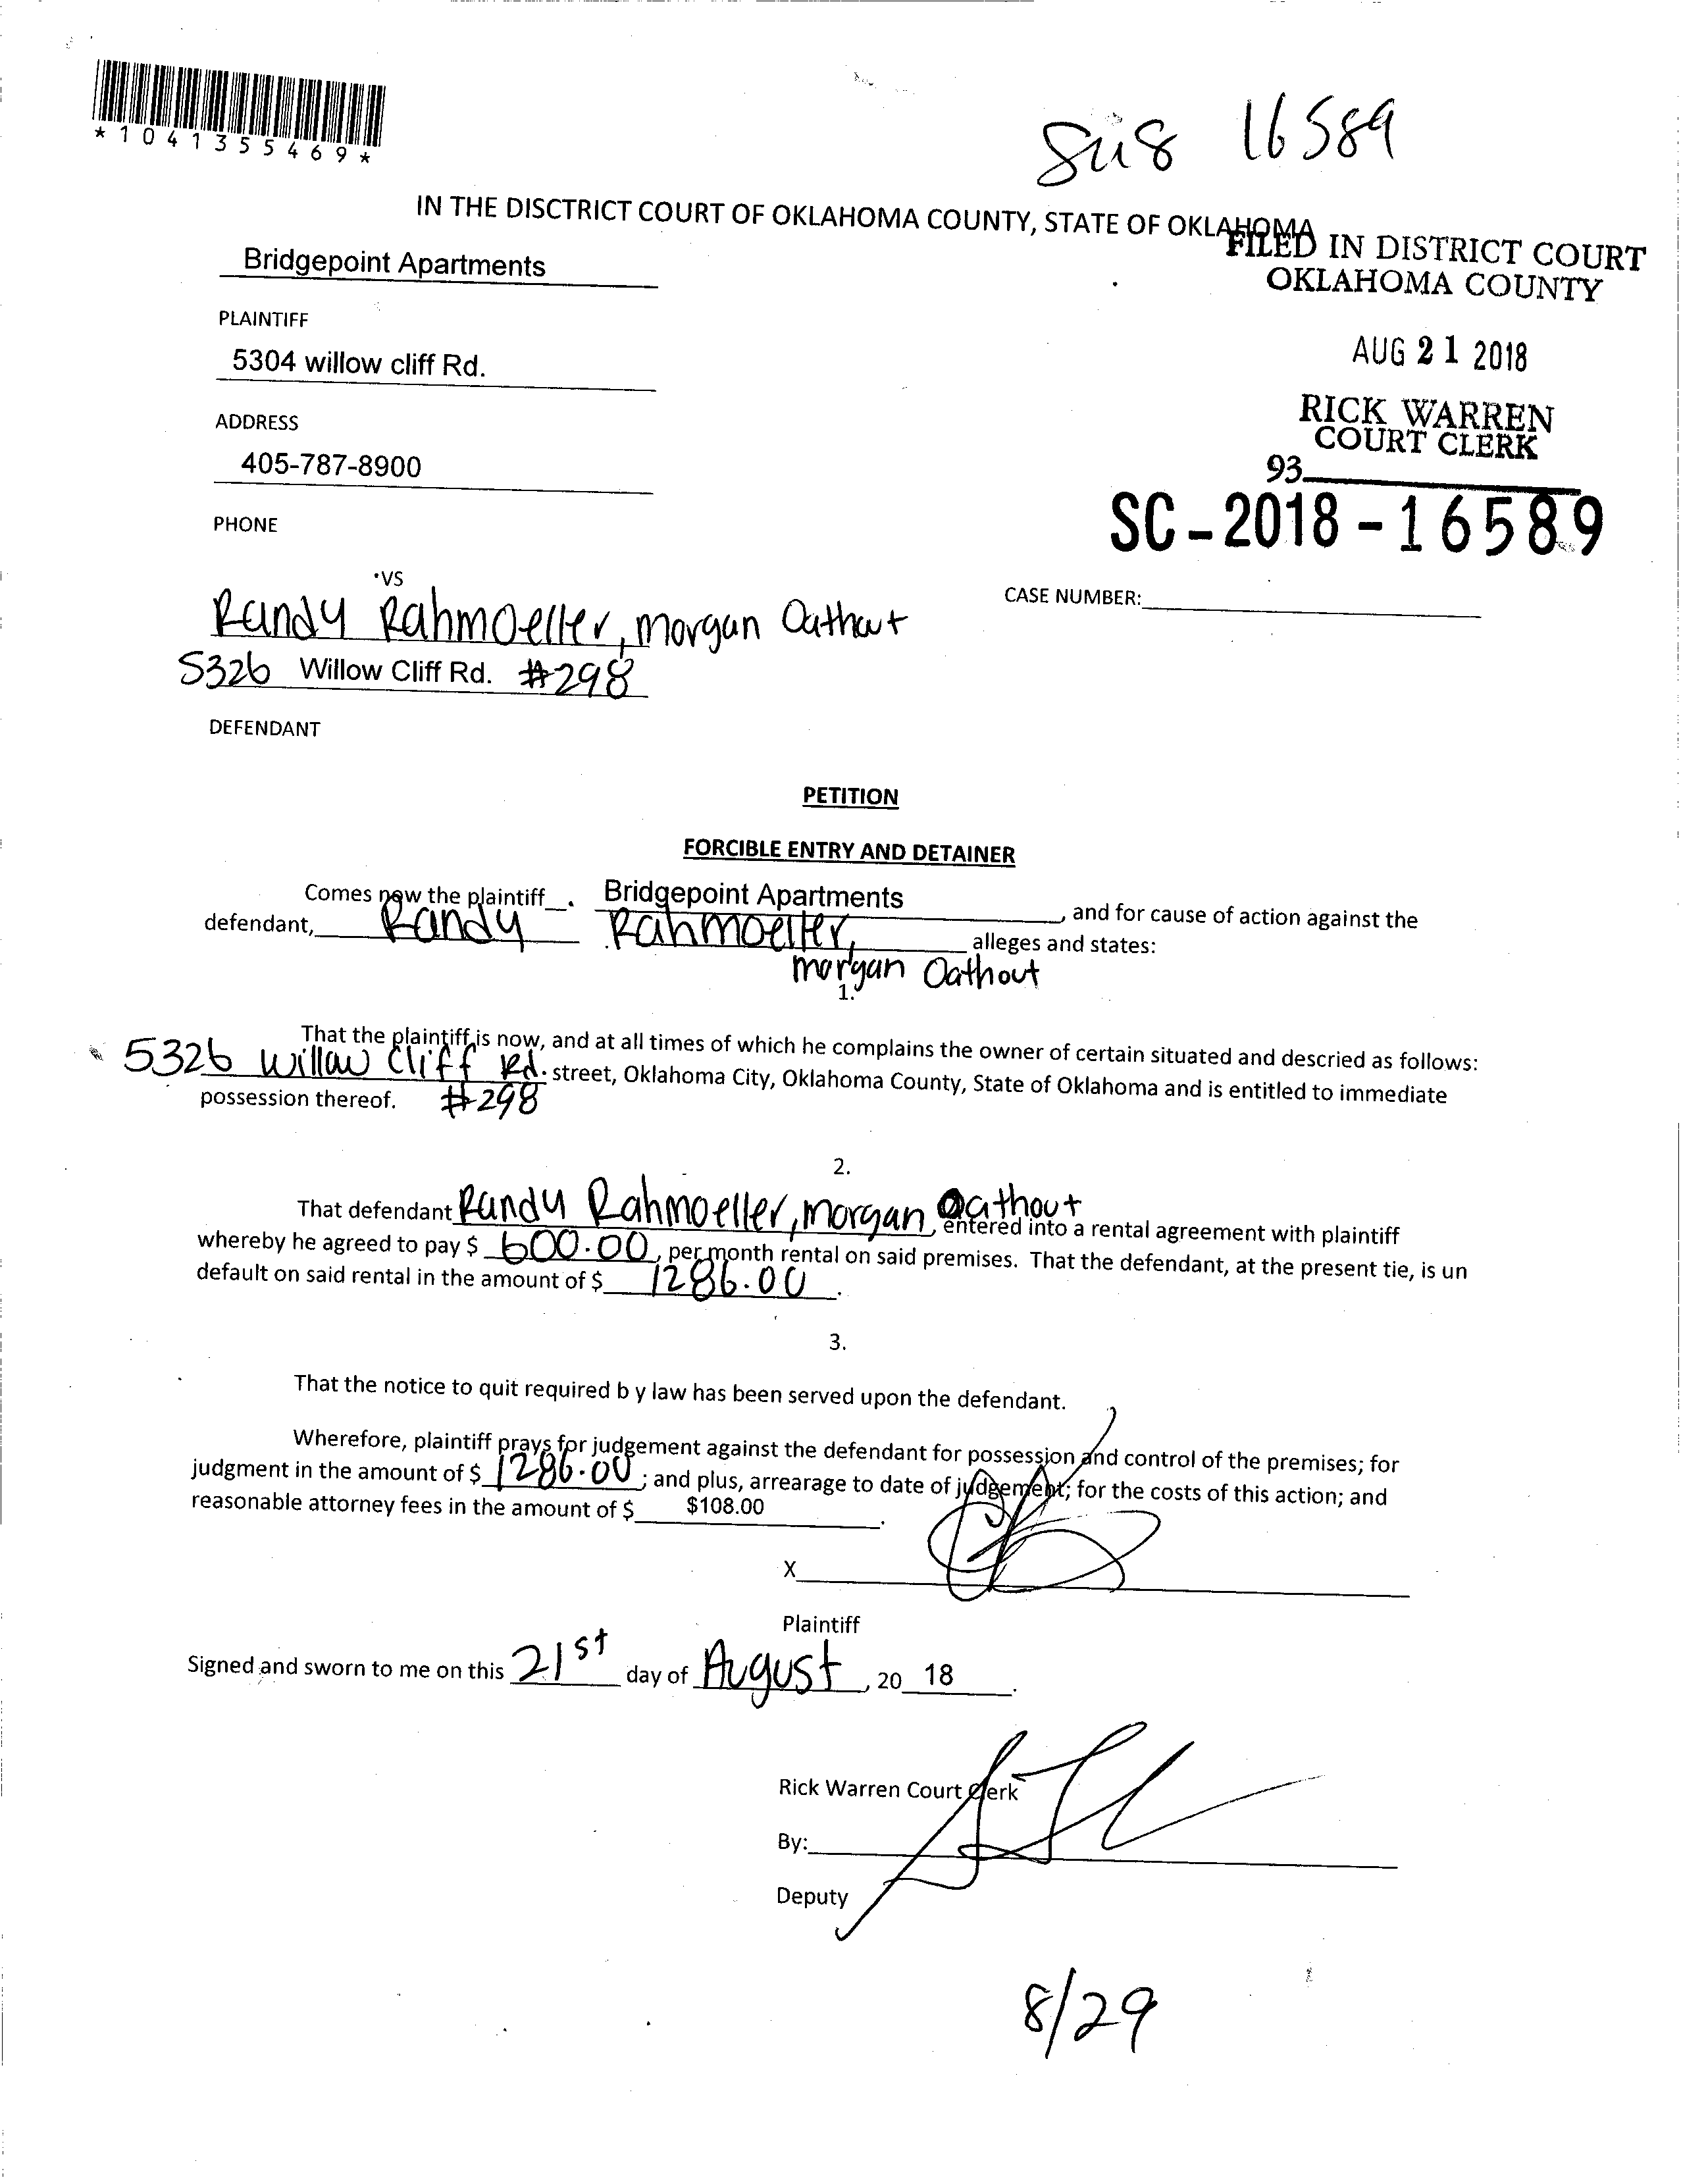 *1041355469*
16589
IN THE DISCTRICT COURT OF OKLAHOMA COUNTY, STATE OF OKLAHOMA
FILED IN DISTRICT COURT
OKLAHOMA COUNTY
Bridgepoint Apartments
PLAINTIFF
5304 willow cliff Rd.
AUG 21 2018
ADDRESS
RICK WARREN
COURT CLERK
405-787-8900
93
PHONE
SC-2018-16589
VS
CASE NUMBER:
Randy Rahmoeller, morgan Oathout
5326 Willow Cliff Rd. #298
DEFENDANT
PETITION
FORCIBLE ENTRY AND DETAINER
Comes now the plaintiff Bridgepoint Apartments, and for cause of action against the
defendant, Randy Rahmoeller, alleges and states:
morgan Oathout
1.
That the plaintiff is now, and at all times of which he complains the owner of certain situated and descried as follows:
5326 Willow Cliff Rd. street, Oklahoma City, Oklahoma County, State of Oklahoma and is entitled to immediate
possession thereof. #298
2.
That defendant Randy Rahmoeller, morgan Oathout, entered into a rental agreement with plaintiff
whereby he agreed to pay $ 600.00, per month rental on said premises. That the defendant, at the present tie, is un
default on said rental in the amount of $ 1286.00.
3.
That the notice to quit required b y law has been served upon the defendant.
Wherefore, plaintiff prays for judgement against the defendant for possession and control of the premises; for
judgment in the amount of $ 1286.00; and plus, arrearage to date of judgement; for the costs of this action; and
reasonable attorney fees in the amount of $ $108.00.
X
Plaintiff
Signed and sworn to me on this 21st day of August, 20 18.
Rick Warren Court Clerk
By:
Deputy
8/29